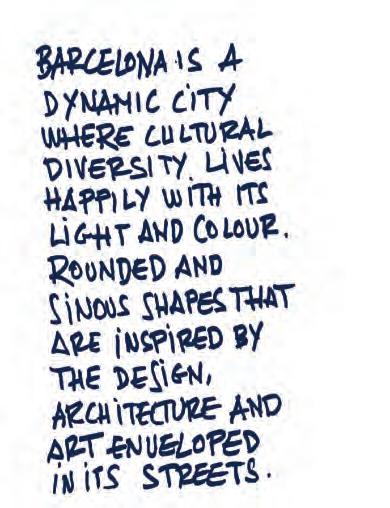 BARCELONA IS A
DYNAMIC CITY
WHERE CULTURAL
DIVERSITY LIVES
HAPPILY WITH ITS
LIGHT AND COLOUR.
ROUNDED AND
SINOUS SHAPES THAT
ARE INSPIRED BY
THE DESIGN,
ARCHITECTURE AND
ART ENVELOPED
IN ITS STREETS.